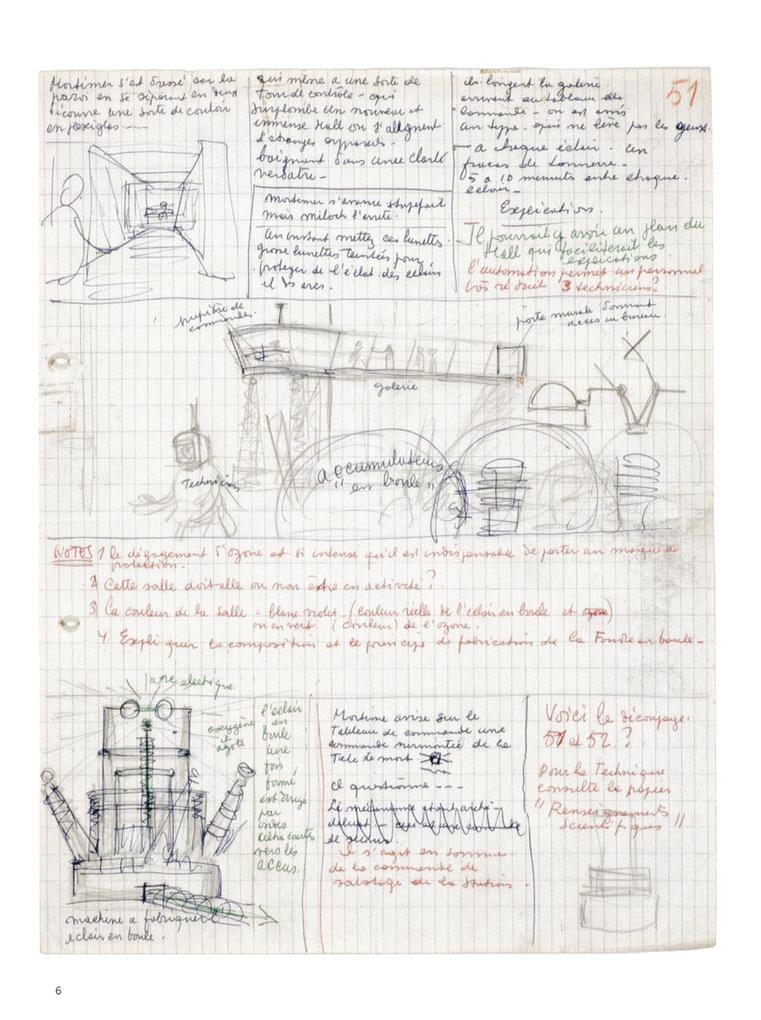 51
Mortimer s'est dressé sur la
paroi en se séparant en deux
découvre une sorte de couloir
en plexiglas ----
qui mène a une sorte de
Tour de contrôle - qui
surplombe un nouveau et
immense Hall ou s'alignent
d'étranges appareils -
baignant dans une clarté
verdatre -
Mortimer s'avance stupefait
mais miloch l'arrete.
un instant mettez ces lunettes.
grosse lunettes teintées pour
proteger de l'éclat des éclairs
et des arcs.
ils longent la galerie
arrivent au tableau de
commande - ou est assis
un type. qui ne lève pas les yeux.
a chaque éclair. un
fracas de tonnerre -
5 a 10 minutes entre chaque
eclair -
Explication.
Il pourrait y avoir un plan du
Hall qui faciliterait les
explications
l'automation permet un personnel
très réduit 3 techniciens?
pupitre de
commandes.
porte murale donnant
accès au bureau.
galerie
Technicien
accumulateurs
"en boule"
NOTES 1 le dégagement d'ozone est si intense qu'il est indispensable de porter un masque de
protection.
2 Cette salle doit-elle ou non être en activité?
3) La couleur de la salle = blanc violet. (couleur réelle de l'éclair en boule et ozone)
ou en vert (couleur) de l'ozone.
4 Expliquer la composition et le principe de fabrication de la Foudre en boule -
arc electrique.
oxygène
et
azote
l'éclair
en
boule
une
fois
formé
est dirigé
par
ondes
ultra courtes
vers les
accus.
machine a fabriquer
éclair en boule.
Mortimer avise sur le
Tableau de commande une
commande surmontée de la
Tete de mort
il questionne ---
de secours.
Il s'agit en somme
de la commande de
sabotage de la station.
Voici le découpage.
51 et 52 ?
Pour la Technique
consulte le papier
"Renseignements
Scientifiques"
6